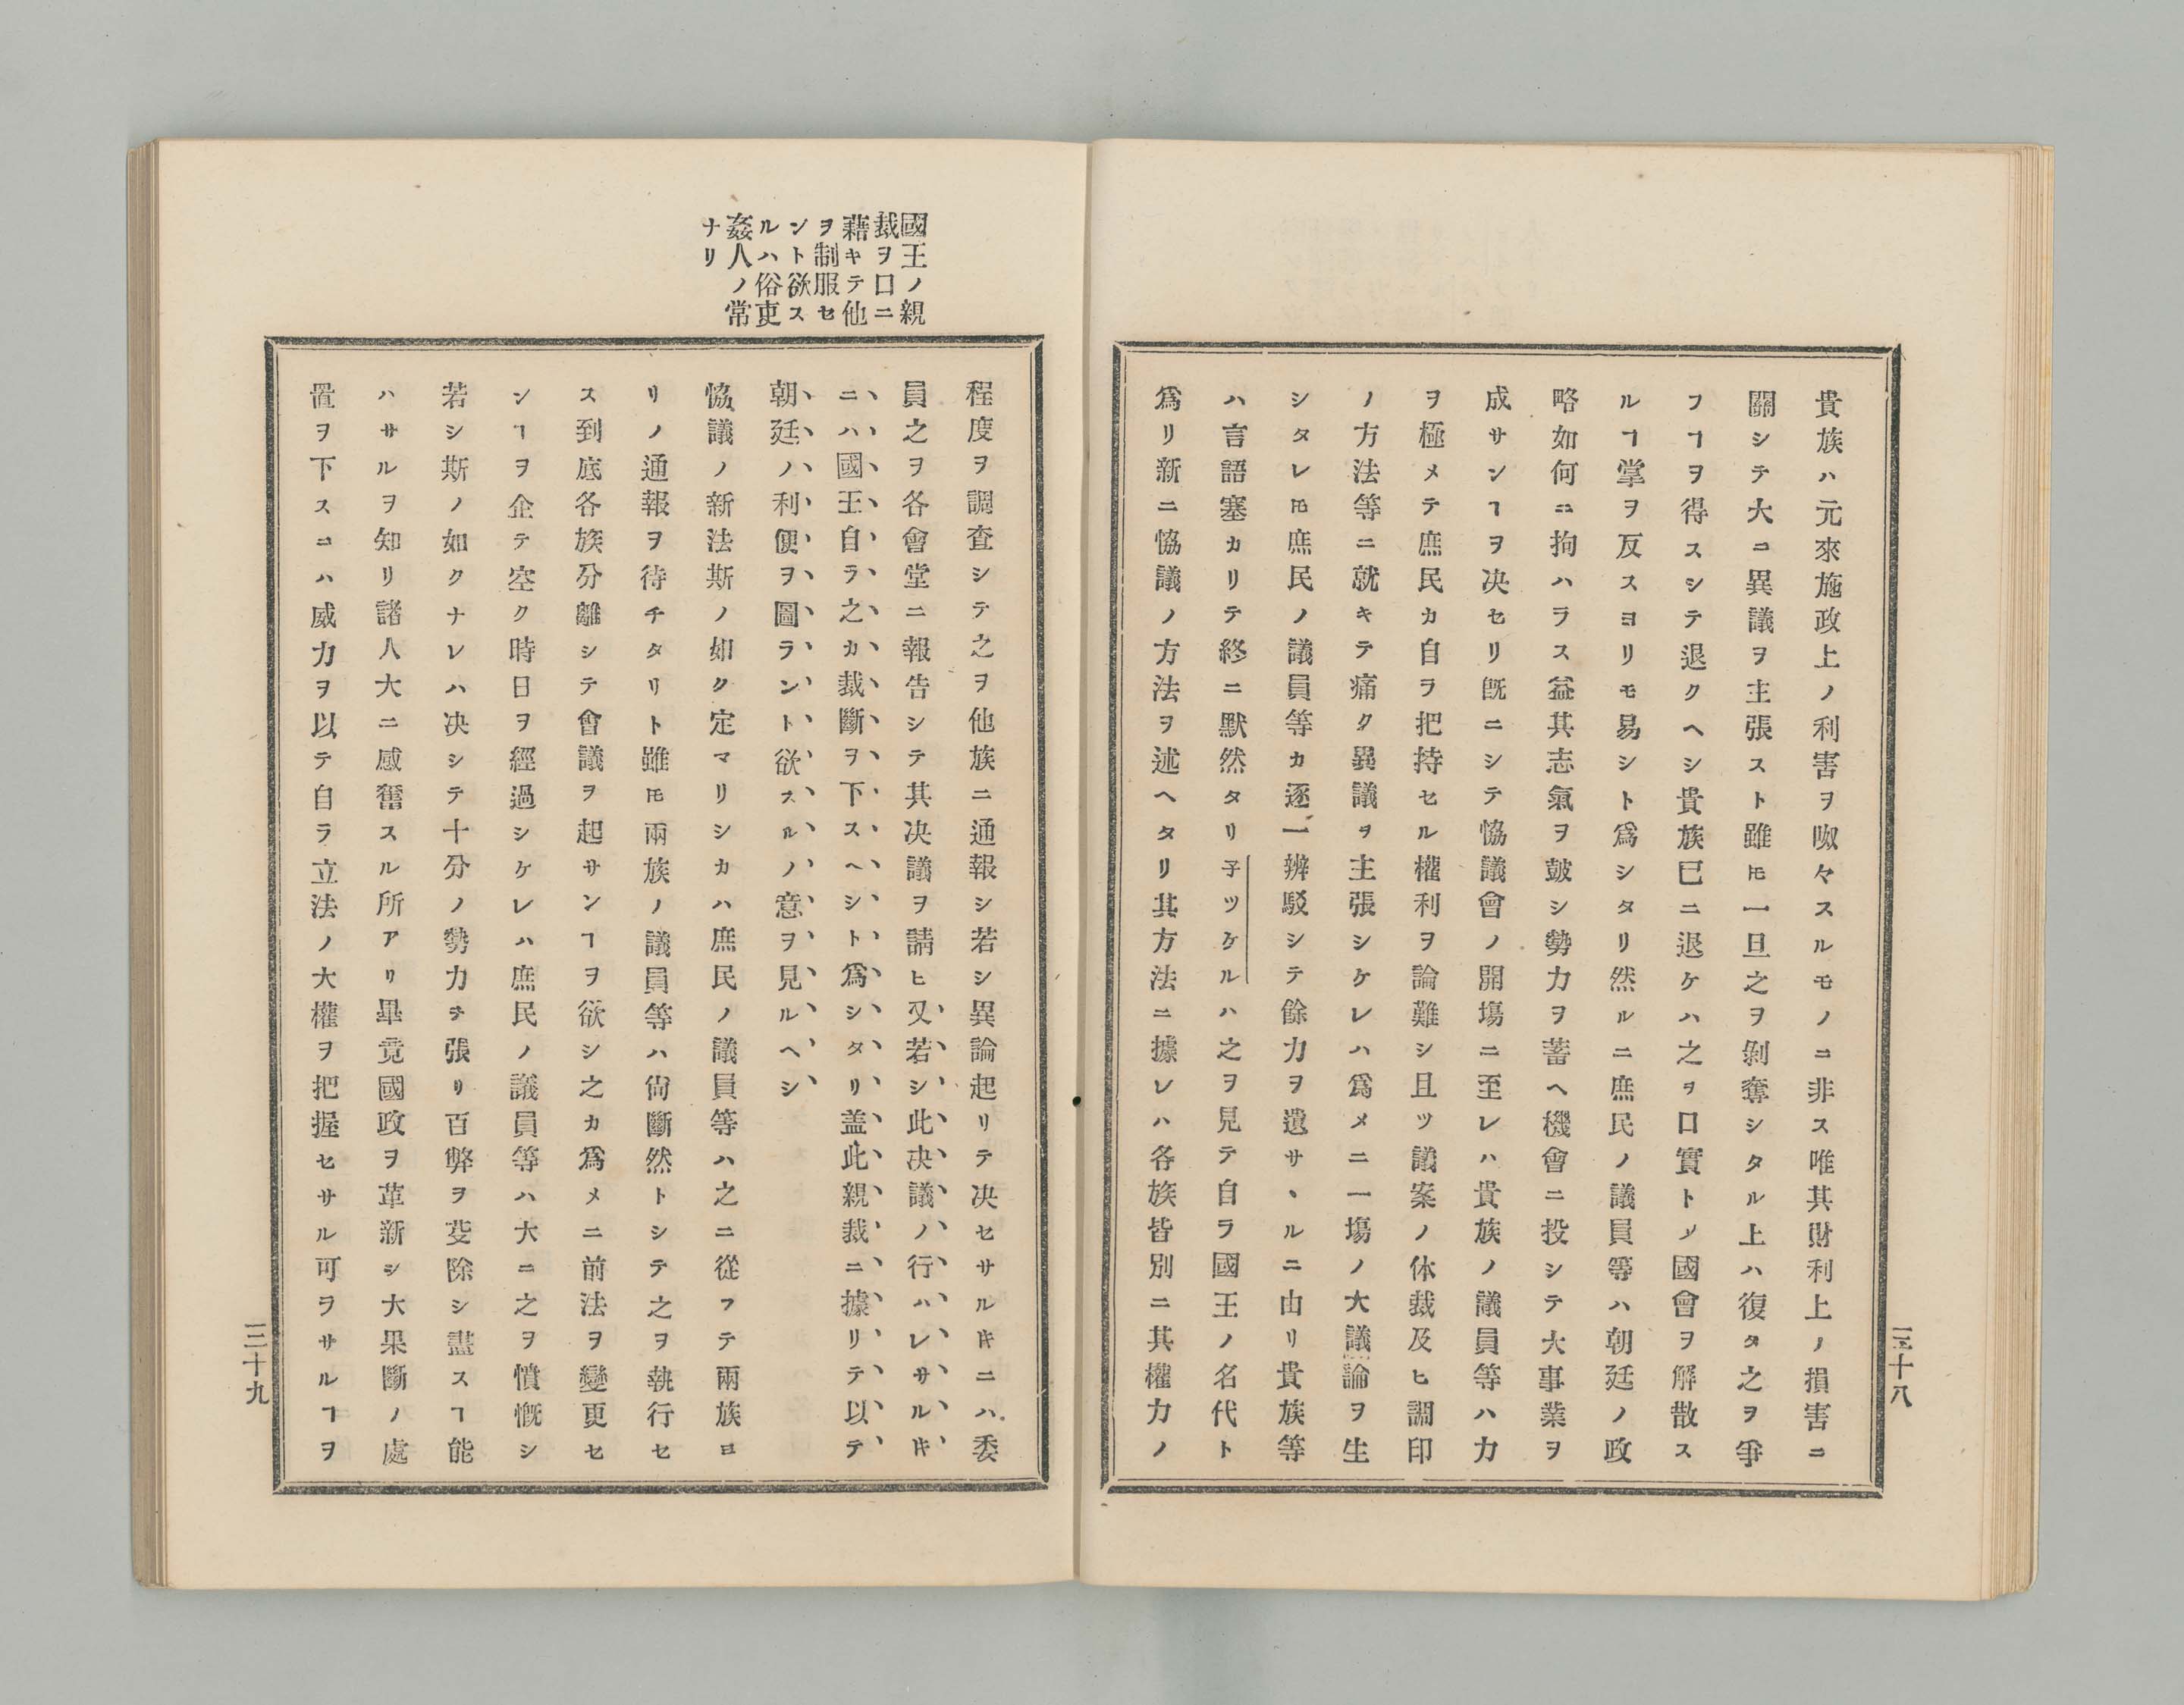 貴族ハ元來施政上ノ利害ヲ呶々スルモノニ非ス唯其財利上ノ損害ニ
關シテ大ニ異議ヲ主張スト雖𪜈一旦之ヲ剝奪シタル上ハ復タ之ヲ爭
フヿヲ得スシテ退クヘシ貴族已ニ退ケハ之ヲ口實トシ國會ヲ解散ス
ルヿ掌ヲ反スヨリモ易シト爲シタリ然ルニ庶民ノ議員等ハ朝廷ノ政
略如何ニ拘ハラス益其志氣ヲ鼓シ勢力ヲ蓄ヘ機會ニ投シテ大事業ヲ
成サンヿヲ决セリ旣ニシテ恊議會ノ開塲ニ至レハ貴族ノ議員等ハ力
ヲ極メテ庶民カ自ラ把持セル權利ヲ論難シ且ツ議案ノ体裁及ヒ調印
ノ方法等ニ就キテ痛ク異議ヲ主張シケレハ爲メニ一塲ノ大議論ヲ生
シタレ𪜈庶民ノ議員等カ逐一辨駁シテ餘力ヲ遺サヽルニ由リ貴族等
ハ言語塞カリテ終ニ默然タリ子ツケルハ之ヲ見テ自ラ國王ノ名代ト
爲リ新ニ恊議ノ方法ヲ述ヘタリ其方法ニ據レハ各族皆別ニ其權力ノ
三十八
國王ノ親
裁ヲ口ニ
藉キテ他
ヲ制服セ
ント欲ス
ルハ俗吏
姦人ノ常
ナリ
程度ヲ調査シテ之ヲ他族ニ通報シ若シ異論起リテ决セサル𪜈ニハ委
員之ヲ各會堂ニ報告シテ其决議ヲ請ヒ又若シ此决議ノ行ハレサル𪜈
ニハ國王自ラ之カ裁斷ヲ下スヘシト爲シタリ盖此親裁ニ據リテ以テ
朝廷ノ利便ヲ圖ラント欲スルノ意ヲ見ルヘシ
恊議ノ新法斯ノ如ク定マリシカハ庶民ノ議員等ハ之ニ從フテ兩族ヨ
リノ通報ヲ待チタリト雖𪜈兩族ノ議員等ハ尙斷然トシテ之ヲ執行セ
ス到底各族分離シテ會議ヲ起サンヿヲ欲シ之カ爲メニ前法ヲ變更セ
ンヿヲ企テ空ク時日ヲ經過シケレハ庶民ノ議員等ハ大ニ之ヲ憤慨シ
若シ斯ノ如クナレハ决シテ十分ノ勢力ヲ張リ百弊ヲ芟除シ盡スヿ能
ハサルヲ知リ諸人大ニ感奮スル所アリ畢竟國政ヲ革新シ大果斷ノ處
置ヲ下スニハ威力ヲ以テ自ラ立法ノ大權ヲ把握セサル可ヲサルヿヲ
三十九